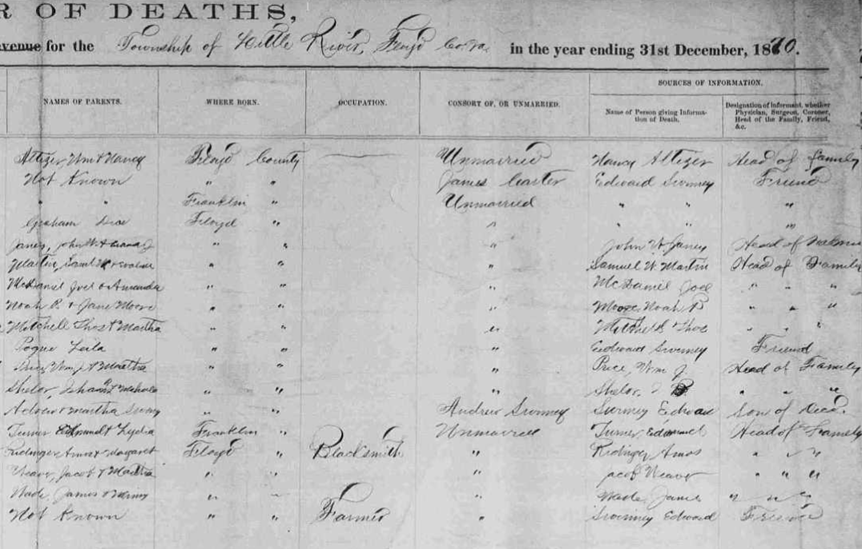 R OF DEATHS,
avenue for the Township of Little River, Floyd Co Va in the year ending 31st December, 1870.
SOURCES OF INFORMATION.
NAMES OF PARENTS. WHERE BORN. OCCUPATION. CONSORT OF, OR UNMARRIED. Name of Person giving Information of Death. Designation of Informant, whether Physician, Surgeon, Coroner, Head of the Family, Friend, &c.
Altizer Wm & Nancy Floyd County Unmarried Nancy Altizer Head of family
Not Known " " James Carter Edward Swinney Friend
" " Franklin " Unmarried " " "
Graham Floyd " " " " "
Janey, John W & " " " John W Janey Head of
Martin, Saml W & " " " Samuel W Martin Head of Family
McDaniel Joel & Amanda " " " McDaniel Joel " " "
Noah P. & Jane Moore " " " Moore Noah P " " "
Mitchell Thos & Martha " " " Mitchell Thos " " "
Pogue Lula " " Edward Swinney Friend
Price Wm J & Martha " " " Price, Wm J Head of Family
Shelor, " " " Shelor, " " "
& Martha " " Andrew Swinney Swinney Edward Son of Decd.
Turner Edmund & Lydia Franklin " Unmarried Turner Edmund Head of Family
Amos & Margaret Floyd " Blacksmith " Amos " " "
Weaver, Jacob & Martha " " " Jacob Weaver " " "
Wade, James & " " " Wade James " " "
Not Known " " Farmer " Swinney Edward Friend